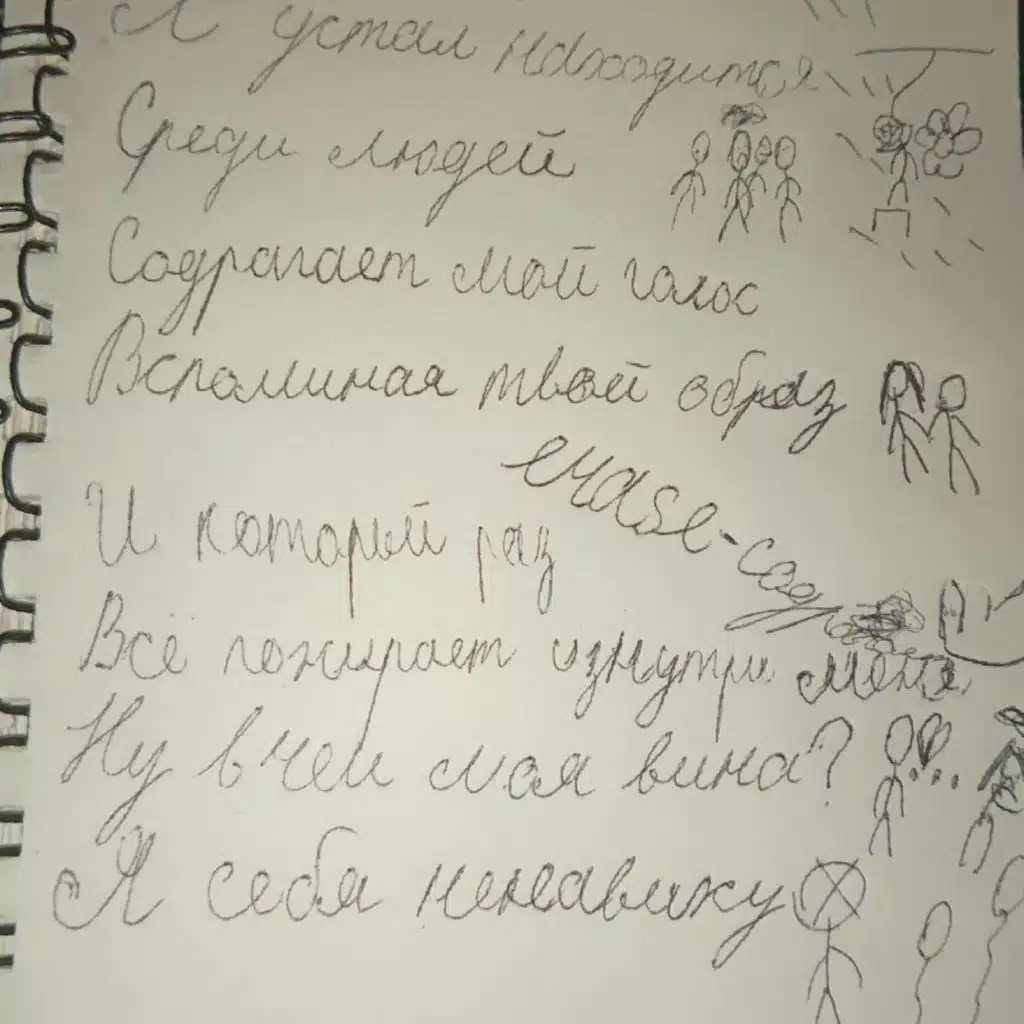 Я устал находится
Среди людей
Содрагает мой голос
Вспоминая твой образ
erase-сод
И который раз
Всё пожирает изнутри меня
Ну в чем моя вина?
Я себя ненавижу